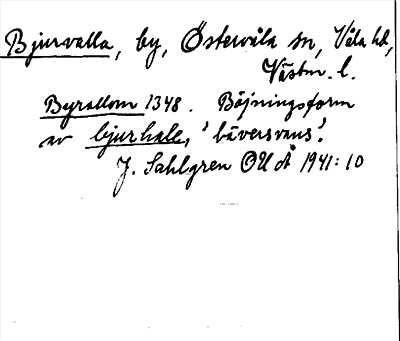 Bjurvalla, by, Östervåla sn, Våla hd,
Västm. l.
Byrallom 1348. Böjningsform
av bjurhale, 'bäversvans'.
J. Sahlgren OUÅ 1941:10